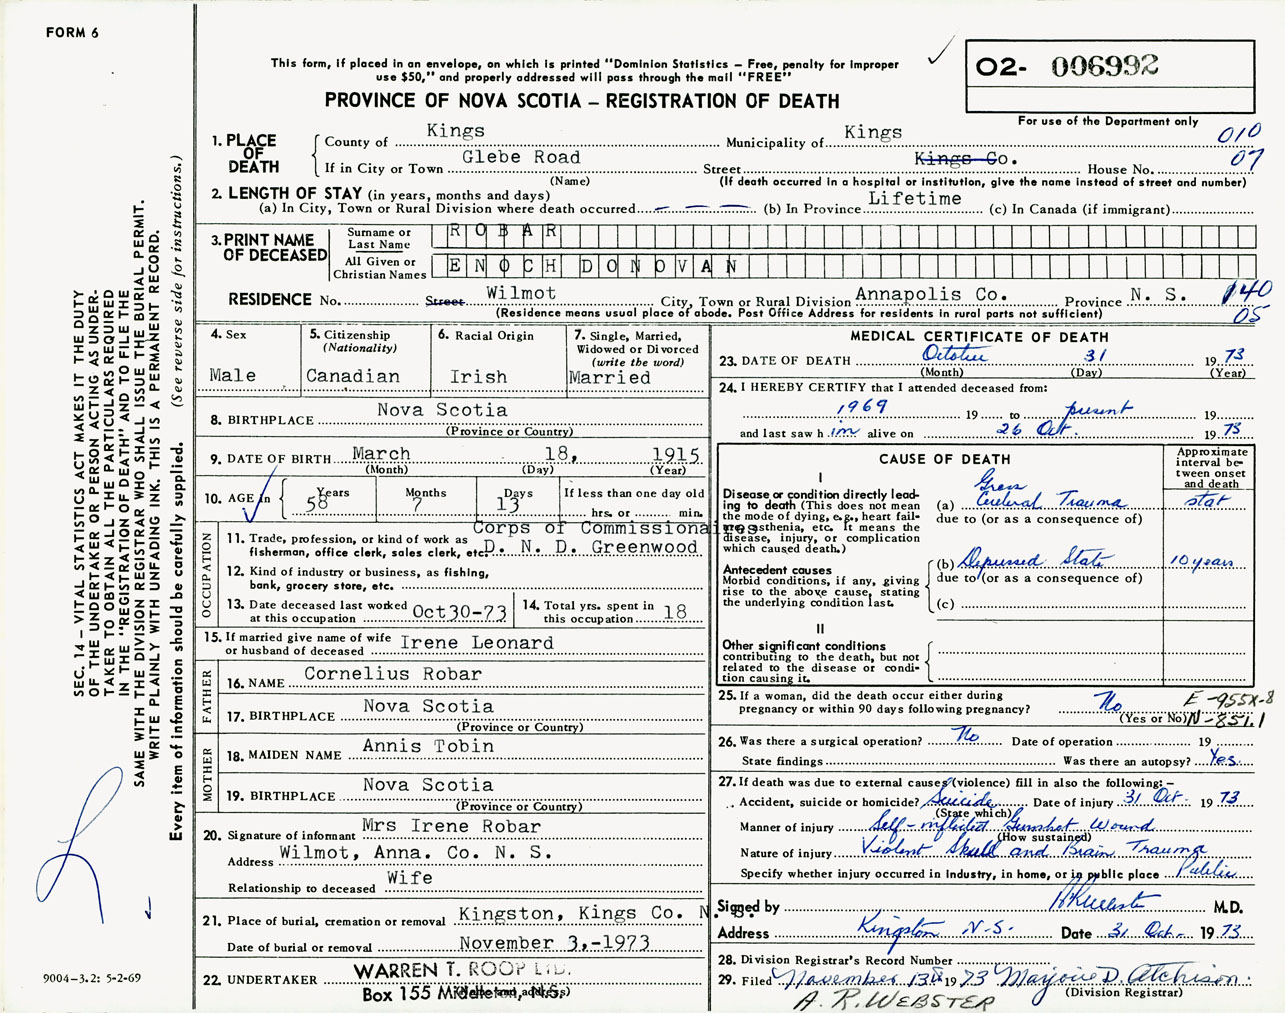 FORM 6
This form, if placed in an envelope, on which is printed "Dominion Statistics – Free, penalty for improper
use $50," and properly addressed will pass through the mail "FREE"
PROVINCE OF NOVA SCOTIA – REGISTRATION OF DEATH
O2- 006992
For use of the Department only
010
07
1. PLACE OF DEATH
County of Kings Municipality of Kings
If in City or Town Glebe Road Street Kings Co. House No.
(Name) (If death occurred in a hospital or institution, give the name instead of street and number)
2. LENGTH OF STAY (in years, months and days)
(a) In City, Town or Rural Division where death occurred — — — (b) In Province Lifetime (c) In Canada (if immigrant)
3. PRINT NAME OF DECEASED
Surname or Last Name ROBAR
All Given or Christian Names ENOCH DONOVAN
RESIDENCE No. Street Wilmot City, Town or Rural Division Annapolis Co. Province N. S. 140
(Residence means usual place of abode. Post Office Address for residents in rural parts not sufficient) 05
4. Sex
Male
5. Citizenship
(Nationality)
Canadian
6. Racial Origin
Irish
7. Single, Married,
Widowed or Divorced
(write the word)
Married
8. BIRTHPLACE Nova Scotia
(Province or Country)
9. DATE OF BIRTH March 18, 1915
(Month) (Day) (Year)
10. AGE in Years Months Days If less than one day old
58 7 13 hrs. or min.
OCCUPATION
Corps of Commissionaires
11. Trade, profession, or kind of work as
fisherman, office clerk, sales clerk, etc. D. N. D. Greenwood
12. Kind of industry or business, as fishing,
bank, grocery store, etc.
13. Date deceased last worked
at this occupation Oct30-73
14. Total yrs. spent in
this occupation 18
15. If married give name of wife
or husband of deceased Irene Leonard
FATHER
16. NAME Cornelius Robar
17. BIRTHPLACE Nova Scotia
(Province or Country)
MOTHER
18. MAIDEN NAME Annis Tobin
19. BIRTHPLACE Nova Scotia
(Province or Country)
20. Signature of informant Mrs Irene Robar
Address Wilmot, Anna. Co. N. S.
Relationship to deceased Wife
21. Place of burial, cremation or removal Kingston, Kings Co. N.S.
Date of burial or removal November 3,-1973
22. UNDERTAKER WARREN T. ROOP LTD.
Box 155 Middleton, N.S.
(Name and address)
MEDICAL CERTIFICATE OF DEATH
23. DATE OF DEATH October 31 1973
(Month) (Day) (Year)
24. I HEREBY CERTIFY that I attended deceased from:
1969 19 to present 19
and last saw him alive on 26 Oct. 1973
CAUSE OF DEATH
Approximate
interval be-
tween onset
and death
I
Disease or condition directly lead-
ing to death (This does not mean
the mode of dying, e.g., heart fail-
ure, asthenia, etc. It means the
disease, injury, or complication
which caused death.)
Gross
(a) Cerebral Trauma stat
due to (or as a consequence of)
Antecedent causes
Morbid conditions, if any, giving
rise to the above cause, stating
the underlying condition last.
(b) Depressed State 10 years
due to (or as a consequence of)
(c)
II
Other significant conditions
contributing to the death, but not
related to the disease or condi-
tion causing it.
25. If a woman, did the death occur either during
pregnancy or within 90 days following pregnancy? No
(Yes or No)
E-955X-8
N-851.1
26. Was there a surgical operation? No Date of operation 19
State findings Was there an autopsy? Yes
27. If death was due to external causes (violence) fill in also the following:–
Accident, suicide or homicide? Suicide Date of injury 31 Oct. 1973
(State which)
Manner of injury Self-inflicted Gunshot Wound
(How sustained)
Nature of injury Violent Skull and Brain Trauma
Specify whether injury occurred in industry, in home, or in public place Public
Signed by M.D.
Address Kingston N.S. Date 31 Oct. 1973
28. Division Registrar's Record Number
29. Filed November 13th 1973 Marjorie D. Atchison
(Division Registrar)
A. R. WEBSTER
SEC. 14 – VITAL STATISTICS ACT MAKES IT THE DUTY
OF THE UNDERTAKER OR PERSON ACTING AS UNDER-
TAKER TO OBTAIN ALL THE PARTICULARS REQUIRED
IN THE "REGISTRATION OF DEATH" AND TO FILE THE
SAME WITH THE DIVISION REGISTRAR WHO SHALL ISSUE THE BURIAL PERMIT.
WRITE PLAINLY WITH UNFADING INK. THIS IS A PERMANENT RECORD.
Every item of information should be carefully supplied. (See reverse side for instructions.)
9004-3.2: 5-2-69